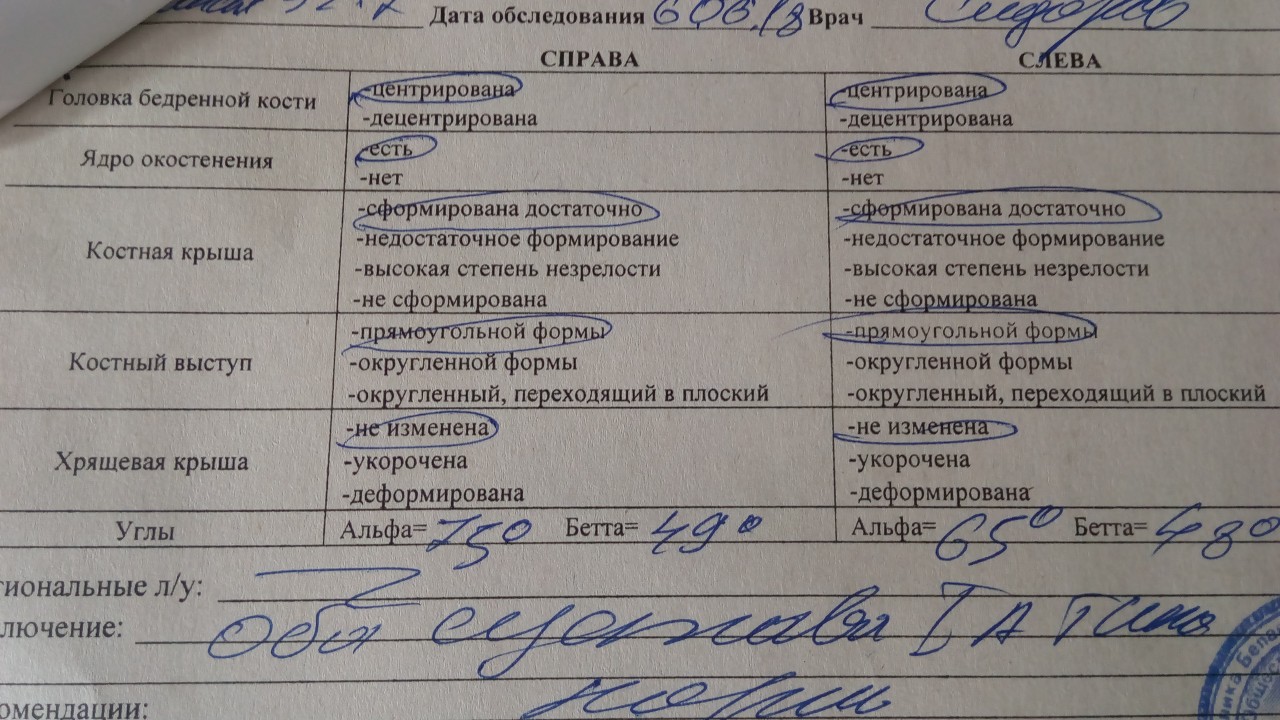 Дата обследования 606.18 Врач Сидорив
СПРАВА СЛЕВА
Головка бедренной кости -центрирована -центрирована
-децентрирована -децентрирована
Ядро окостенения -есть -есть
-нет -нет
-сформирована достаточно -сформирована достаточно
Костная крыша -недостаточное формирование -недостаточное формирование
-высокая степень незрелости -высокая степень незрелости
-не сформирована -не сформирована
-прямоугольной формы -прямоугольной формы
Костный выступ -округленной формы -округленной формы
-округленный, переходящий в плоский -округленный, переходящий в плоский
-не изменена -не изменена
Хрящевая крыша -укорочена -укорочена
-деформирована -деформирована
Углы Альфа= 75° Бетта= 49° Альфа= 65° Бетта= 48°
гиональные л/у:
лючение: Оба сустава I А типа
норм
омендации: